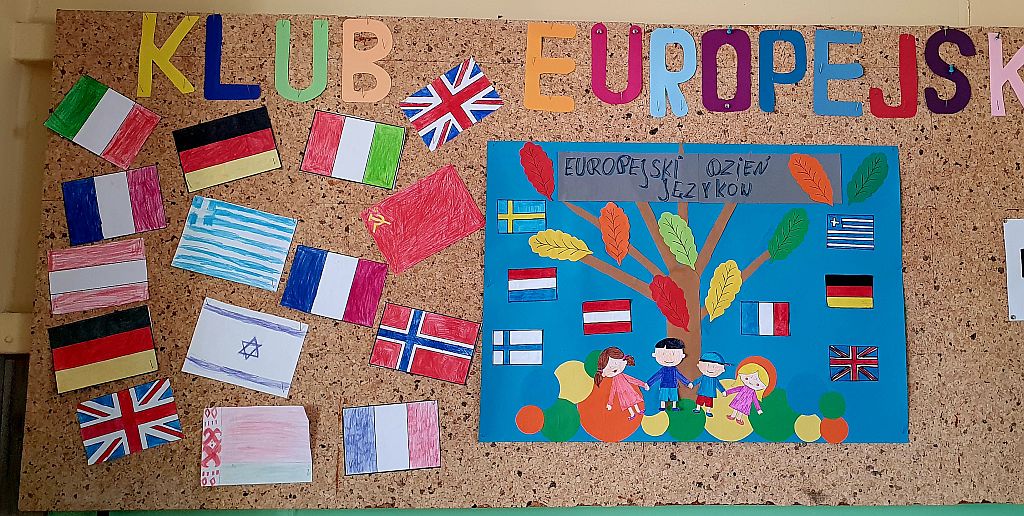 KLUB EUROPEJSK
EUROPEJSKI DZIEŃ
JĘZYKÓW